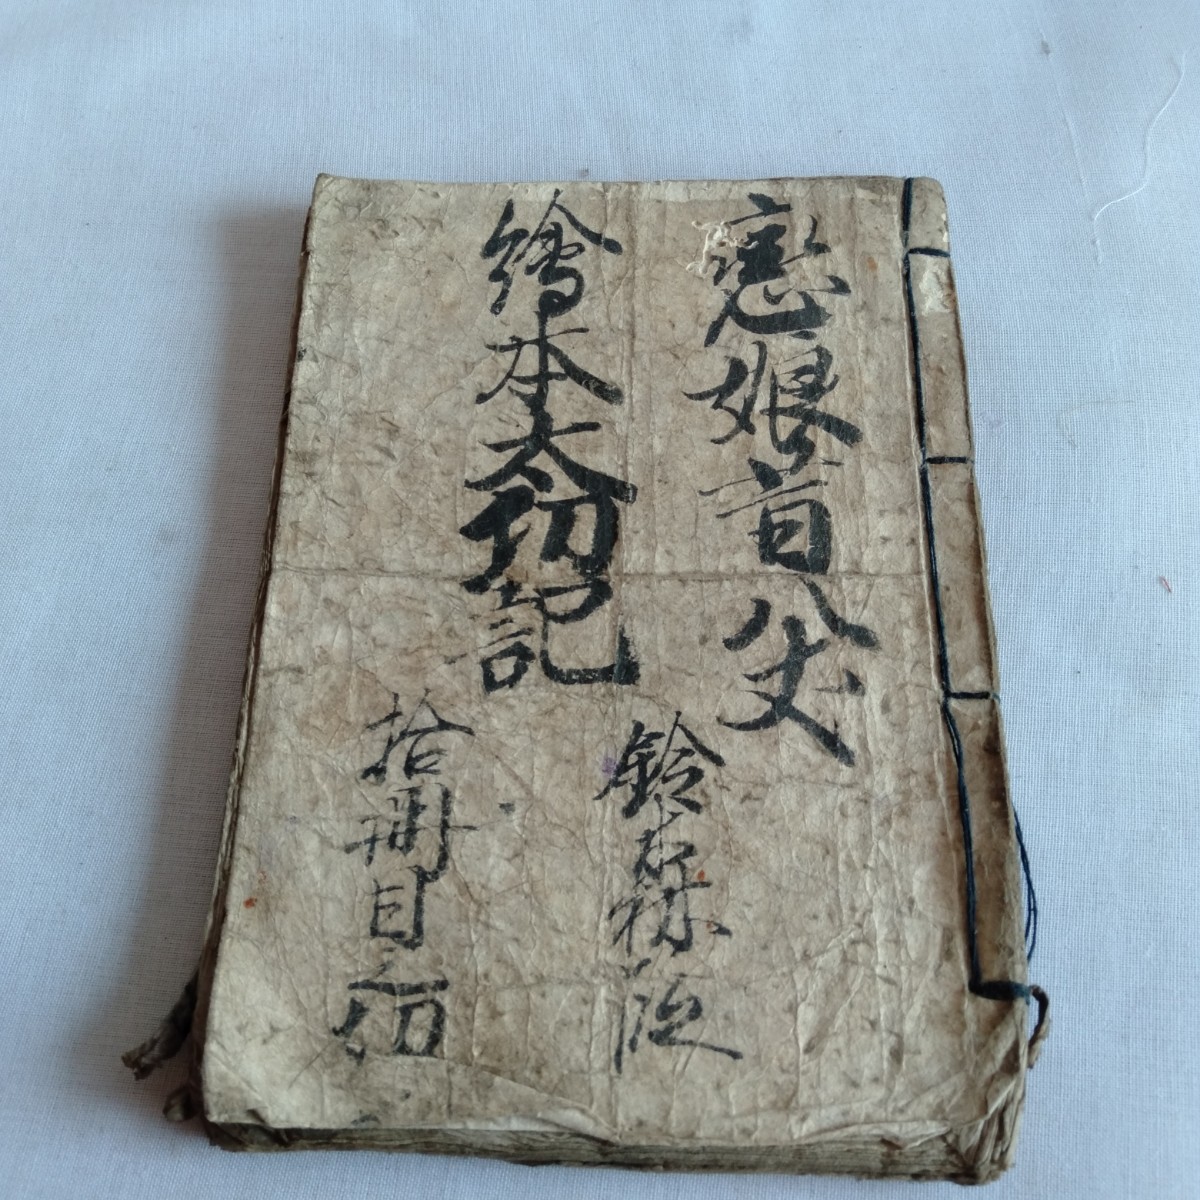 戀娘昔八丈
鈴ヶ森段
繪本太功記
拾冊目之切